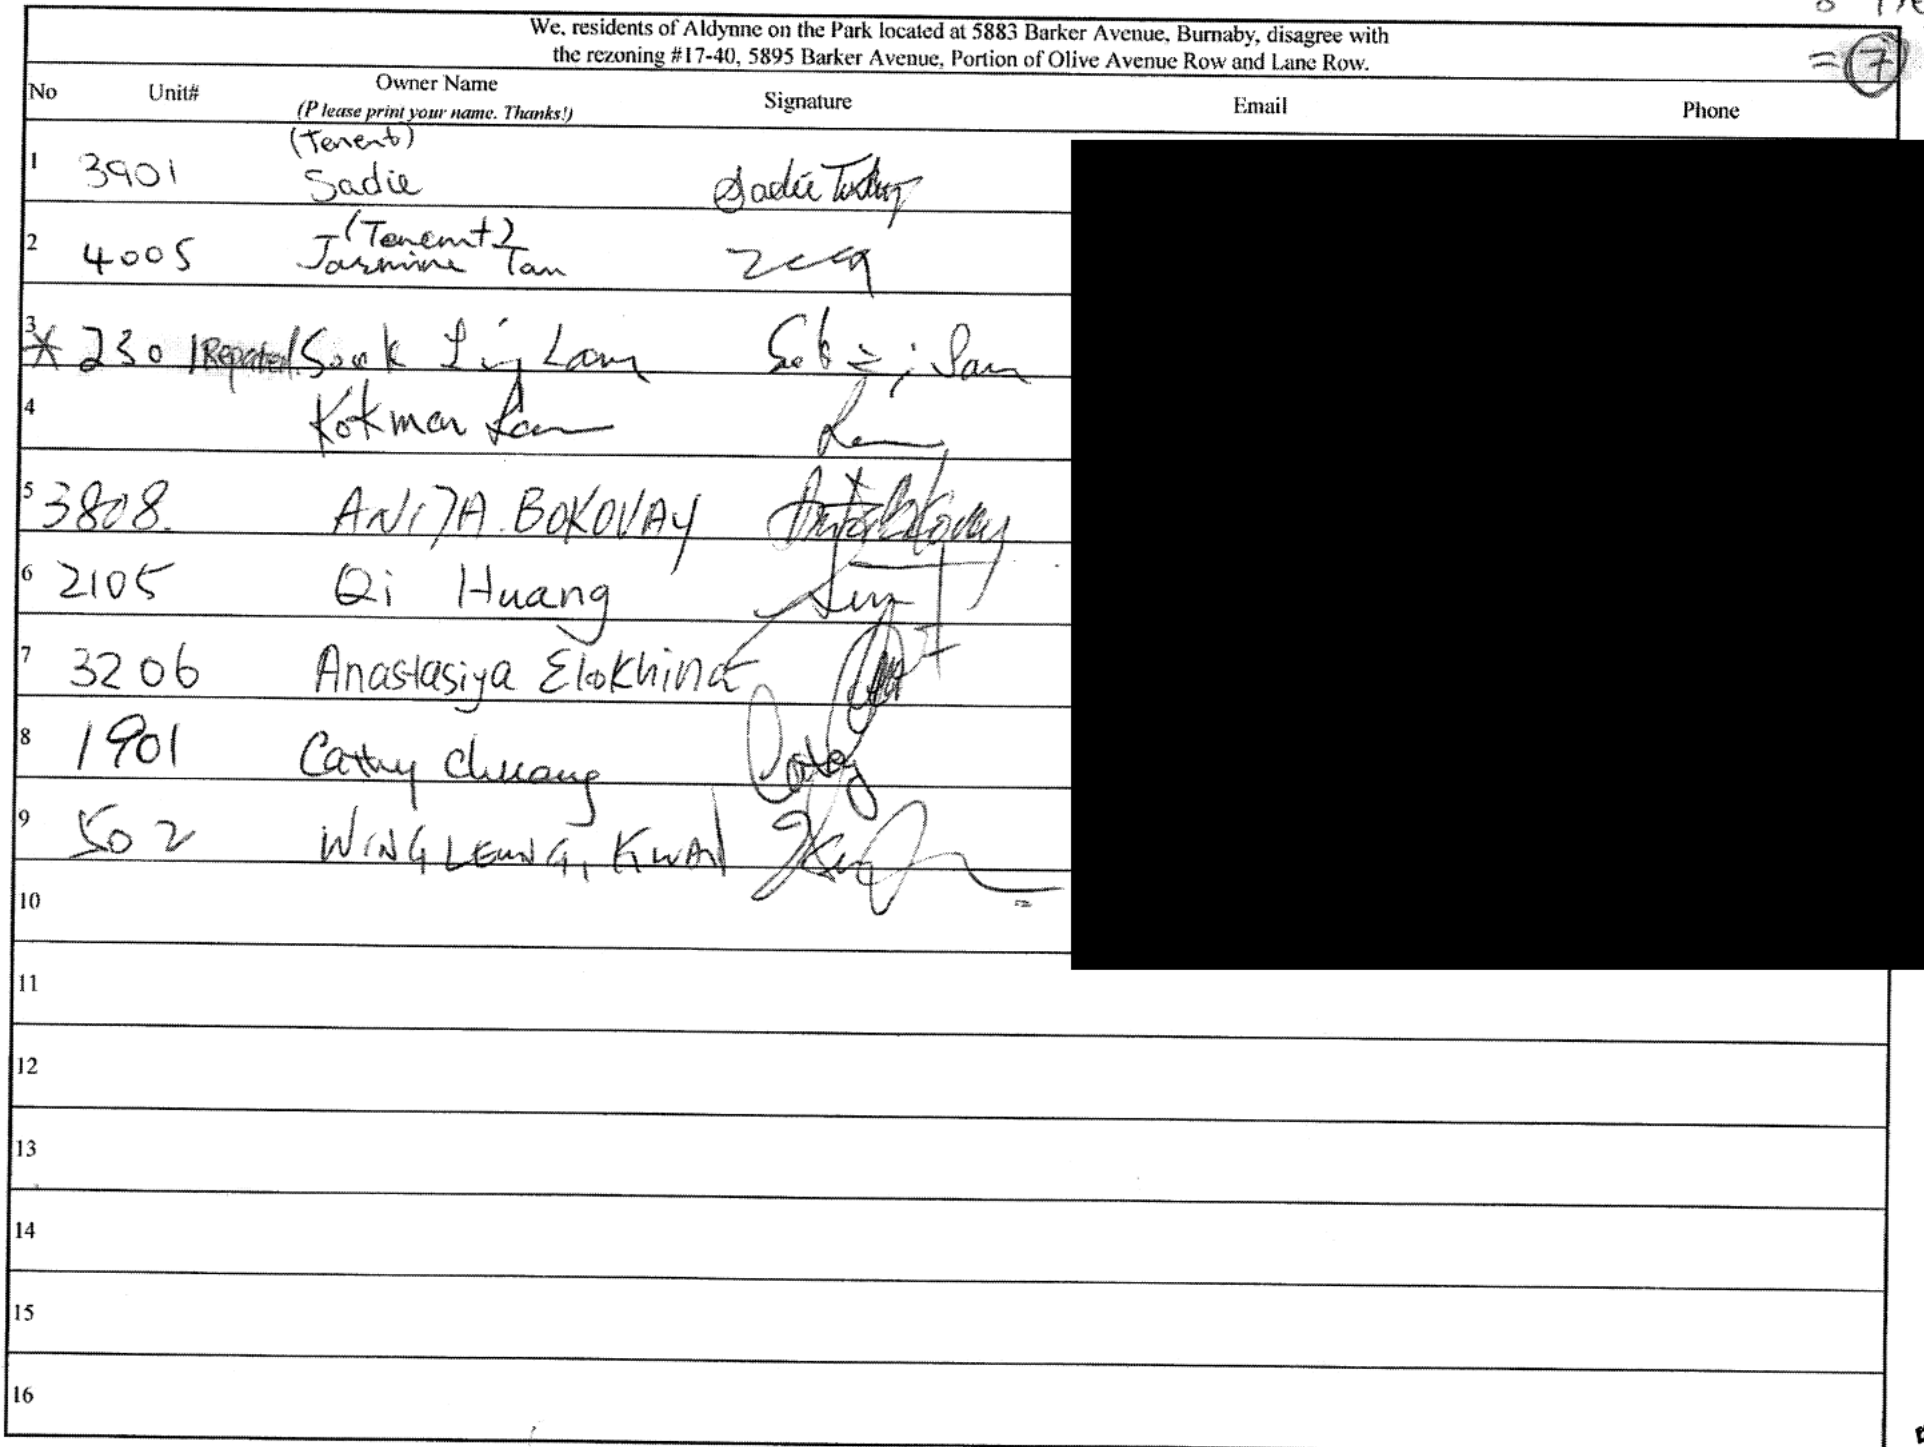 We, residents of Aldynne on the Park located at 5883 Barker Avenue, Burnaby, disagree with
the rezoning #17-40, 5895 Barker Avenue, Portion of Olive Avenue Row and Lane Row.
= 7
No Unit# Owner Name Signature Email Phone
(Please print your name. Thanks!)
(Tenent)
1 3901 Sadie Sadie
(Tenemt)
2 4005 Jasmine Tan
3 * 2301 Repeated. Sook Lam
4 Kokman Lam
5 3808. ANITA. BOKOVAY Anita Bokovay
6 2105 Qi Huang
7 3206 Anastasiya Elokhina
8 1901 Cathy Chuang Cathy
9 502 WING LEUNG, KWAN
10
11
12
13
14
15
16